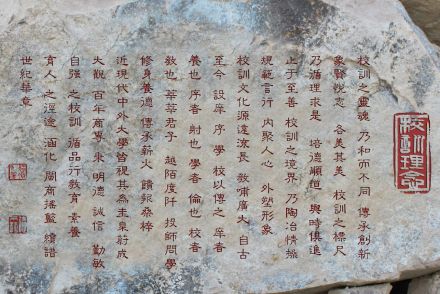 校訓理念
校訓之靈魂 乃和而不同 傳承創新
象賢悅志 各美其美 校訓之標尺
乃循理求是 培德順恒 與時俱進
止于至善 校訓之境界 乃陶冶情操
規範言行 內聚人心 外塑形象
校訓文化源遠流長 敷哺廣大 自古
至今 設庠 序 學 校以傳之 庠者
養也 序者 射也 學者 倫也 校者
教也 莘莘君子 越陌度阡 投師問學
修身養德 傳承薪火 饋報桑梓
近現代中外大學皆視其為圭臬蔚成
大觀 百年商專 秉明德 誠信 勤敏
自强 之校訓 循品行教育 素養
育人之徑途 涵化 閩商搖籃 續譜
世紀華章